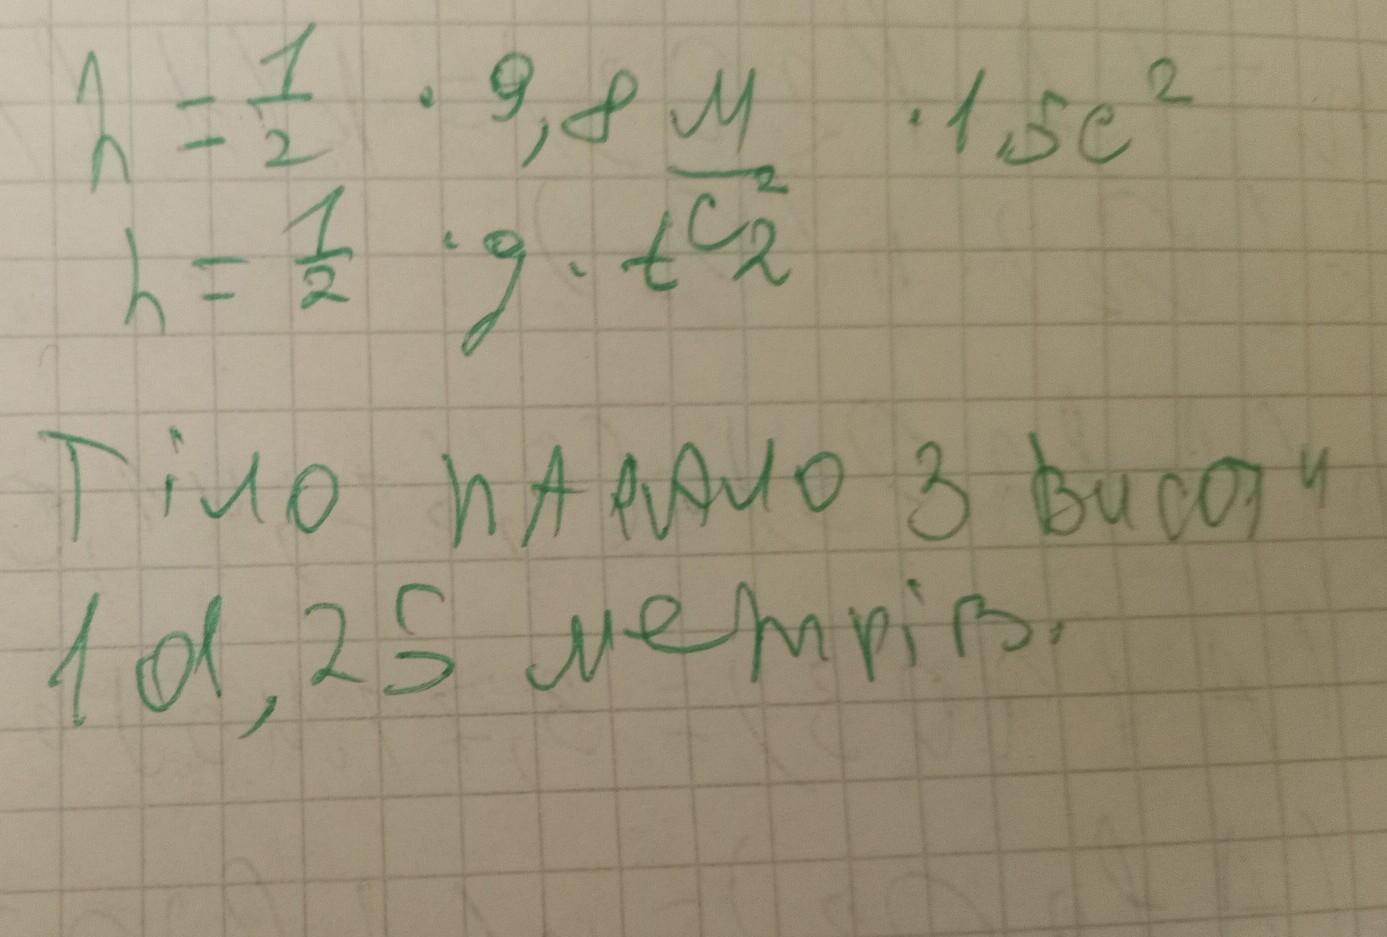 h = 1/2 · 9,8 м/с² · 1,5с²
h = 1/2 · g · t²
Тіло падало з висоти
1 01,25 метрів.